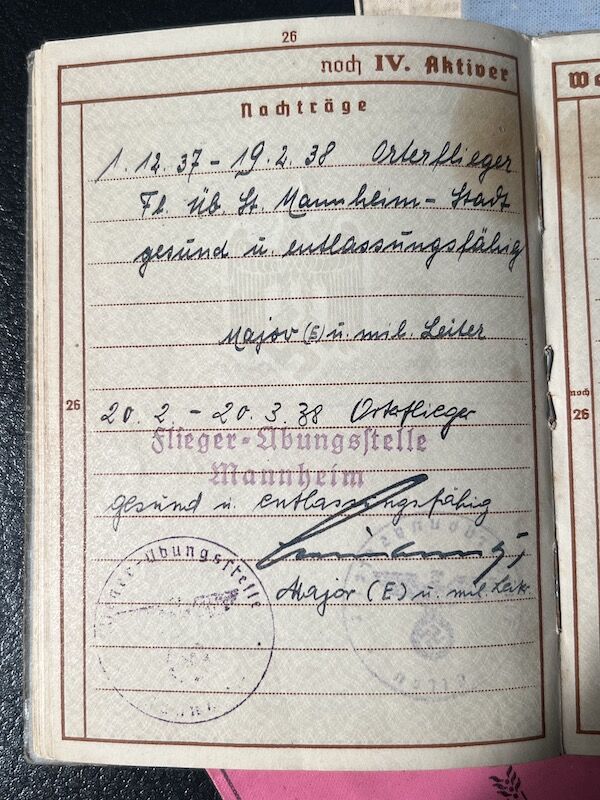 26
noch IV. Aktiver
Nachträge
1. 12. 37 - 19. 2. 38 Orterflieger
Fl. Üb. St. Mannheim - Stadt
gesund u entlassungsfähig
Major (E) u. mil. Leiter
26
20. 2. - 20. 3. 38 Ortsflieger
Flieger-Übungsstelle
Mannheim
gesund u. entlassungsfähig
Major (E) u. mil. Leit.
Flieger-Übungsstelle
We
noch
26